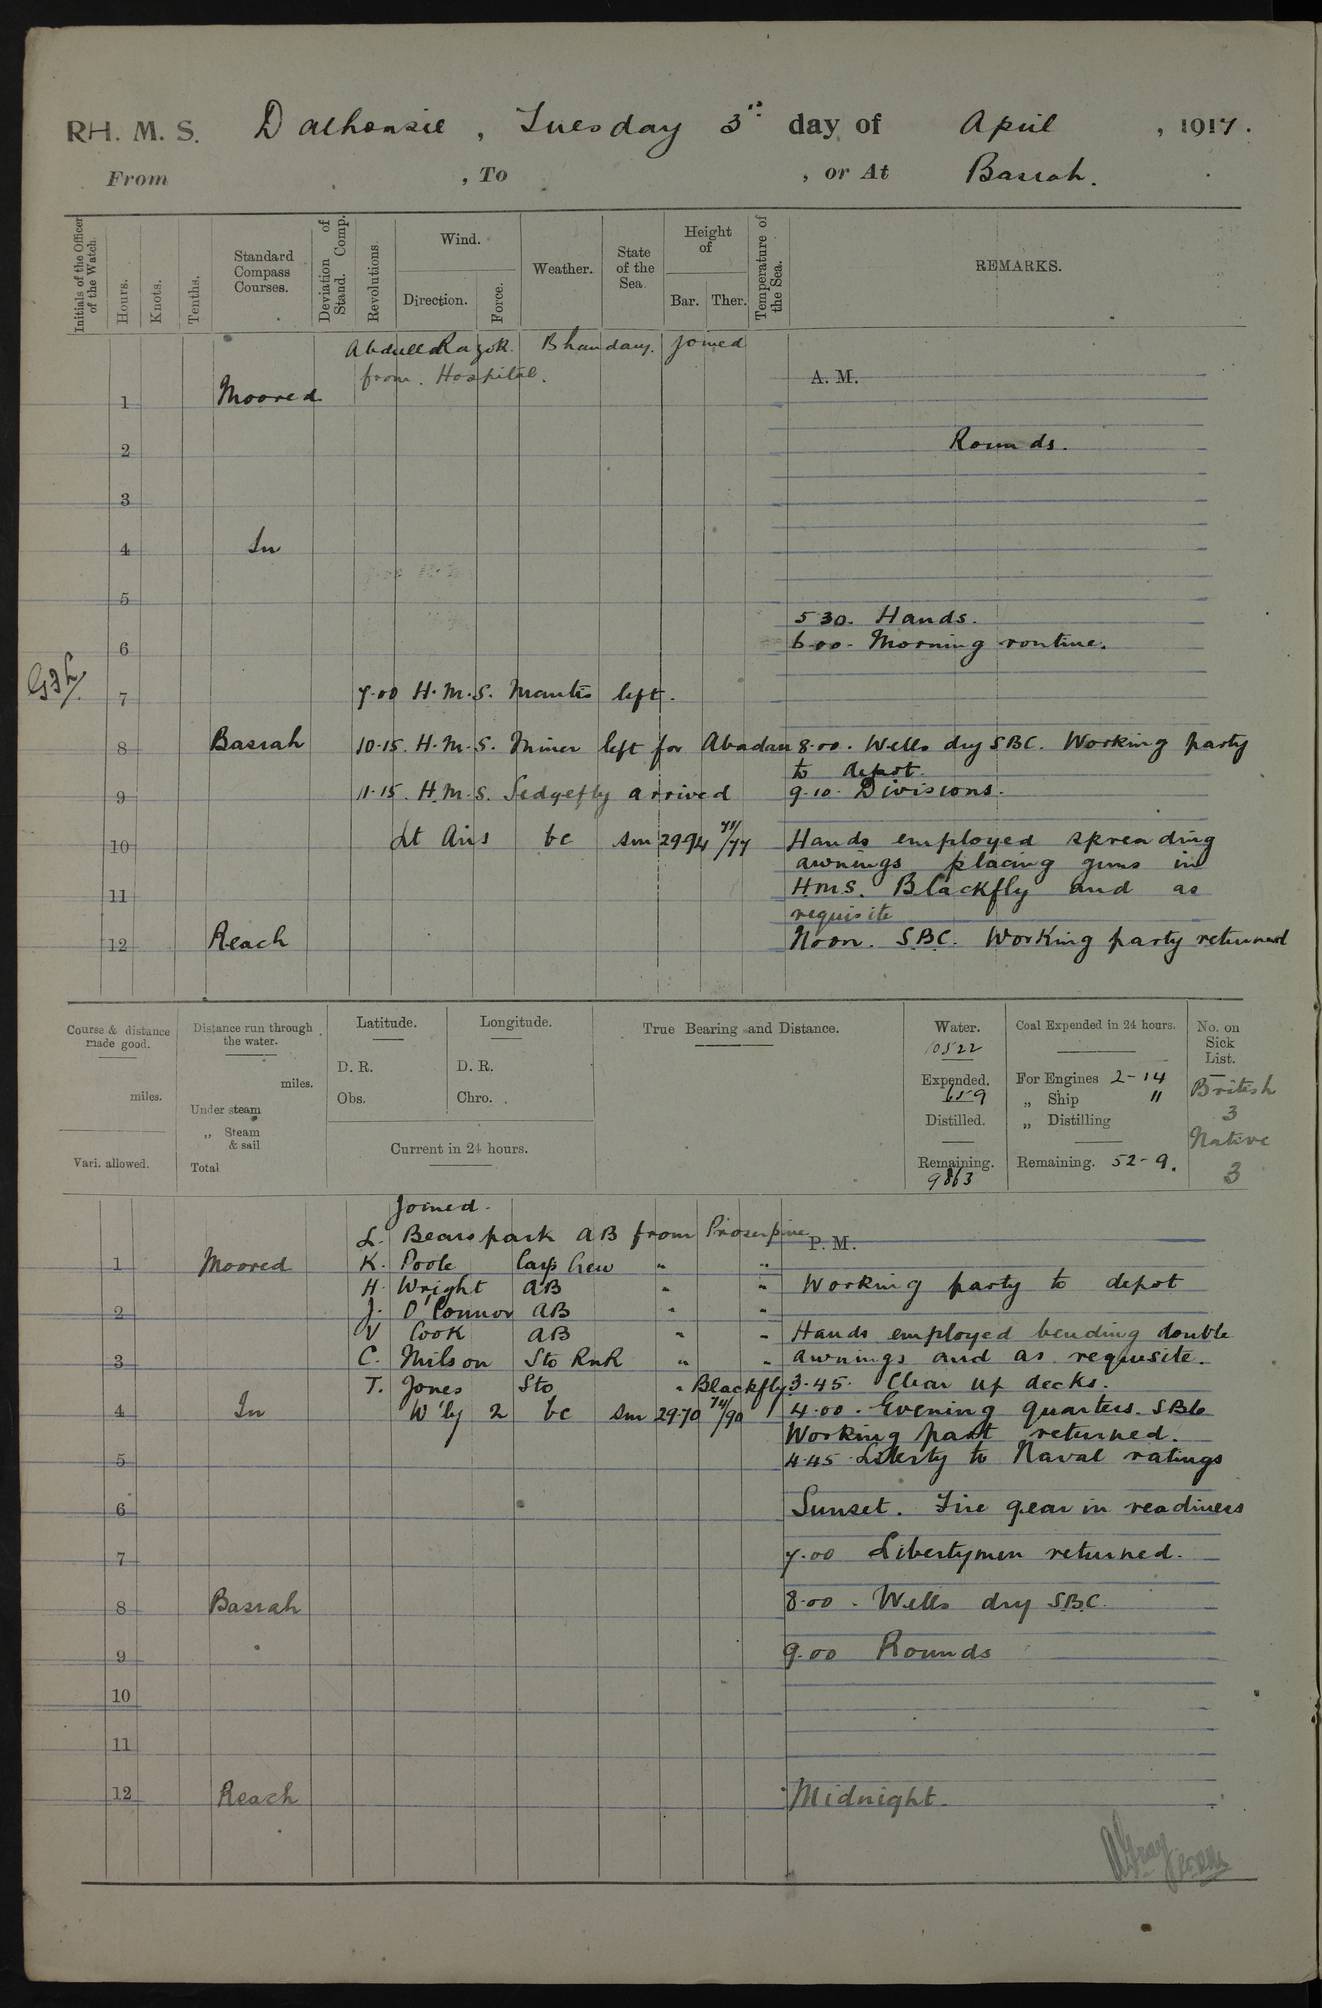 RH. M. S. Dalhousie, Tuesday 3rd day of April, 1917.
From , To , or At Basrah.
Initials of the Officer of the Watch.
Hours.
Knots.
Tenths.
Standard Compass Courses.
Deviation of Stand. Comp.
Revolutions.
Wind.
Direction.
Force.
Weather.
State of the Sea
Height of
Bar. Ther.
Temperature of the Sea.
REMARKS.
Abdulla Razok. Bhandary. joined
from. Hospital.
A. M.
1 Moored
2 Rounds.
3
4 In
5
5 30. Hands.
6 6.00. Morning routine.
7 7.00 H.M.S. Mantis left.
8 Basrah 10.15. H.M.S. Miner left for Abadan 8.00. Wells dry SBC. Working party
to depot.
9 11.15. H.M.S. Sedgefly arrived 9.10. Divisions.
10 Lt Airs bc sm 29.94 /77 Hands employed spreading
awnings placing guns in
11 H.M.S. Blackfly and as
requisite
12 Reach Noon. S.B.C. Working party returned
Course & distance made good.
miles.
Vari. allowed.
Distance run through the water.
miles.
Under steam
„ Steam & sail
Total
Latitude.
D. R.
Obs.
Longitude.
D. R.
Chro.
Current in 24 hours.
True Bearing and Distance.
Water.
10522
Expended.
659
Distilled.
Remaining.
9863
Coal Expended in 24 hours.
For Engines 2-14
„ Ship "
„ Distilling
Remaining. 52-9.
No. on Sick List.
British
3
Native
3
Joined.
L. Bearspark AB from Proserpine
P. M.
1 Moored K. Poole Carp Crew " "
H. Wright AB " " Working party to depot
2 J. O'Connor AB " "
V Cook AB " " Hands employed bending double
3 C. Milson Sto RNR " " awnings and as requisite.
T. Jones Sto " Blackfly 3.45. Clear up decks.
4 In W'ly 2 bc sm 29.70 74/90 4.00. Evening quarters. SBC
Working part returned.
5 4.45 Liberty to Naval ratings
6 Sunset. Fire gear in readiness
7 7.00 Libertymen returned.
8 Basrah 8.00. Wells dry S.B.C.
9 9.00 Rounds
10
11
12 Reach Midnight.